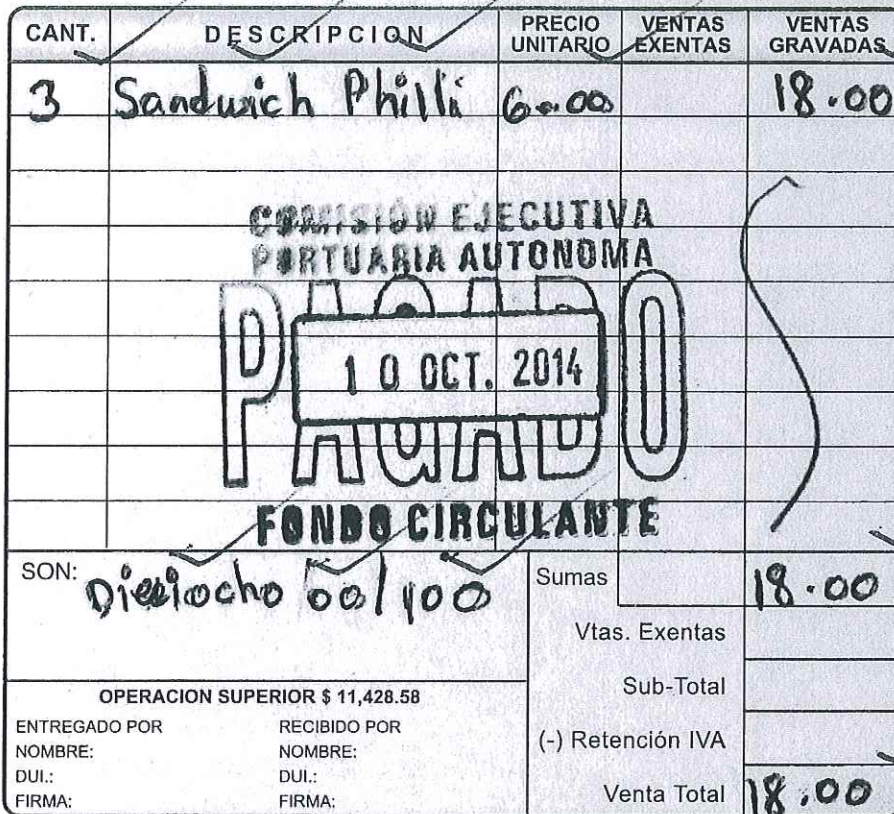 CANT. DESCRIPCION PRECIO UNITARIO VENTAS EXENTAS VENTAS GRAVADAS
3 Sandwich Philli 6.00 18.00
COMISIÓN EJECUTIVA
PORTUARIA AUTONOMA
PAGADO
10 OCT. 2014
FONDO CIRCULANTE
SON: Dieciocho 00/100
Sumas 18.00
Vtas. Exentas
Sub-Total
(-) Retención IVA
Venta Total 18.00
OPERACION SUPERIOR $ 11,428.58
ENTREGADO POR RECIBIDO POR
NOMBRE: NOMBRE:
DUI.: DUI.:
FIRMA: FIRMA: